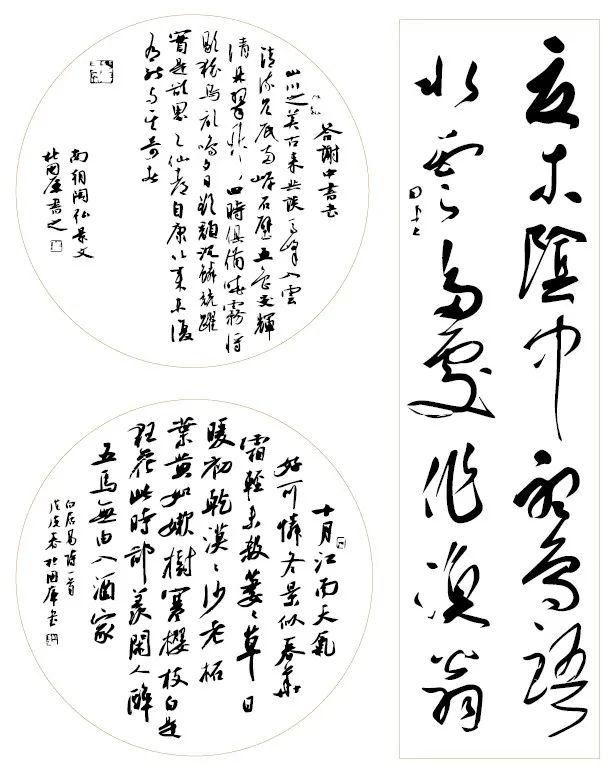 夏木陰中鳥語
水雲多處作漁翁
答謝中書書
山川之美古来共談高峰入雲
清流見底兩岸石壁五色交輝
青林翠竹四時俱備曉霧将
歇猿鳥亂鳴夕日欲頹沉鱗競躍
實是欲界之仙都自康以来未復
有能与其奇者
南朝陶弘景文
北國原書之
十月江南天氣
好可憐冬景似春華
霜輕未殺萋々草日
暖初乾漠々沙老柘
葉黄如嫩樹寒櫻枝白是
狂花此時却羨閑人醉
五馬無由入酒家
白居易詩一首
戊戌春北國原書